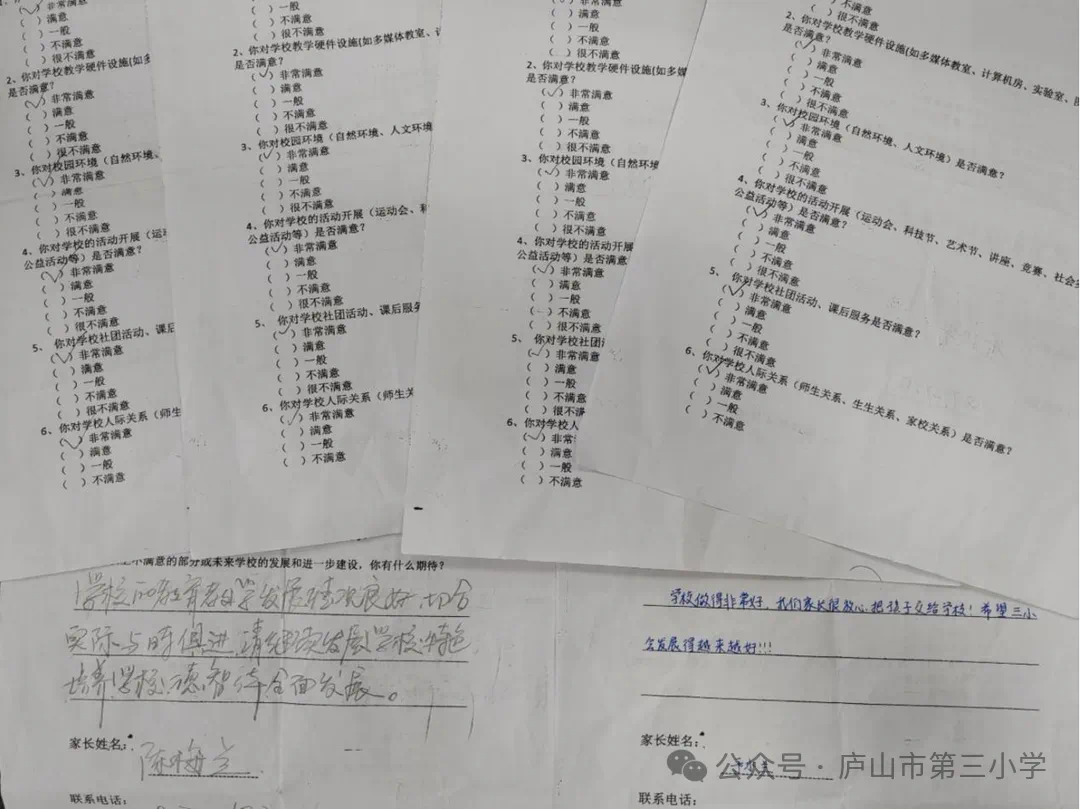 (✓) 非常满意
( ) 满意
( ) 一般
( ) 不满意
( ) 很不满意
2、你对学校教学硬件设施(如多
是否满意?
(✓) 非常满意
( ) 满意
( ) 一般
( ) 不满意
( ) 很不满意
3、你对校园环境(自然环境、
(✓) 非常满意
( ) 满意
( ) 一般
( ) 不满意
( ) 很不满意
4、你对学校的活动开展(运
公益活动等)是否满意?
(✓) 非常满意
( ) 满意
( ) 一般
( ) 不满意
( ) 很不满意
5、你对学校社团活动、课后
(✓) 非常满意
( ) 满意
( ) 一般
( ) 不满意
( ) 很不满意
6、你对学校人际关系(师生
(✓) 非常满意
( ) 满意
( ) 一般
( ) 不满意
( ) 满意
( ) 一般
( ) 不满意
( ) 很不满意
2、你对学校教学硬件设施(如多媒体教室、
是否满意?
(✓) 非常满意
( ) 满意
( ) 一般
( ) 不满意
( ) 很不满意
3、你对校园环境(自然环境、人文环境
(✓) 非常满意
( ) 满意
( ) 一般
( ) 不满意
( ) 很不满意
4、你对学校的活动开展(运动会、科
公益活动等)是否满意?
(✓) 非常满意
( ) 满意
( ) 一般
( ) 不满意
( ) 很不满意
5、你对学校社团活动、课后服务
(✓) 非常满意
( ) 满意
( ) 一般
( ) 不满意
( ) 很不满意
6、你对学校人际关系(师生关
(✓) 非常满意
( ) 满意
( ) 一般
( ) 不满意
(✓) 非常满意
( ) 满意
( ) 一般
( ) 不满意
( ) 很不满意
2、你对学校教学硬件设施(如多媒
是否满意?
(✓) 非常满意
( ) 满意
( ) 一般
( ) 不满意
( ) 很不满意
3、你对校园环境(自然环境
(✓) 非常满意
( ) 满意
( ) 一般
( ) 不满意
( ) 很不满意
4、你对学校的活动开展
公益活动等)是否满意
(✓) 非常满意
( ) 满意
( ) 一般
( ) 不满意
( ) 很不满意
5、你对学校社团
(✓) 非常满意
( ) 满意
( ) 一般
( ) 不满意
( ) 很不满
6、你对学校人
(✓) 非常
( ) 满意
( ) 一般
( ) 不满意
( ) 不满意
( ) 很不满意
2、你对学校教学硬件设施(如多媒体教室、计算机房、实验室、
是否满意?
(✓) 非常满意
( ) 满意
( ) 一般
( ) 不满意
( ) 很不满意
3、你对校园环境(自然环境、人文环境)是否满意?
(✓) 非常满意
( ) 满意
( ) 一般
( ) 不满意
( ) 很不满意
4、你对学校的活动开展(运动会、科技节、艺术节、讲座、竞赛、社会
公益活动等)是否满意?
(✓) 非常满意
( ) 满意
( ) 一般
( ) 不满意
( ) 很不满意
5、你对学校社团活动、课后服务是否满意?
(✓) 非常满意
( ) 满意
( ) 一般
( ) 不满意
( ) 很不满意
6、你对学校人际关系(师生关系、生生关系、家校关系)是否满意?
(✓) 非常满意
( ) 满意
( ) 一般
( ) 不满意
不满意的部分或未来学校的发展和进一步建设,你有什么期待?
学校的教育教学发展情况良好,切合
实际与时俱进,请继续发展学校特色
培养学校德智体全面发展。
家长姓名:陈梅兰
联系电话:
学校做得非常好,我们家长很放心把孩子交给学校!希望三小
会发展得越来越好!!!
家长姓名:
联系电话:
公众号·庐山市第三小学